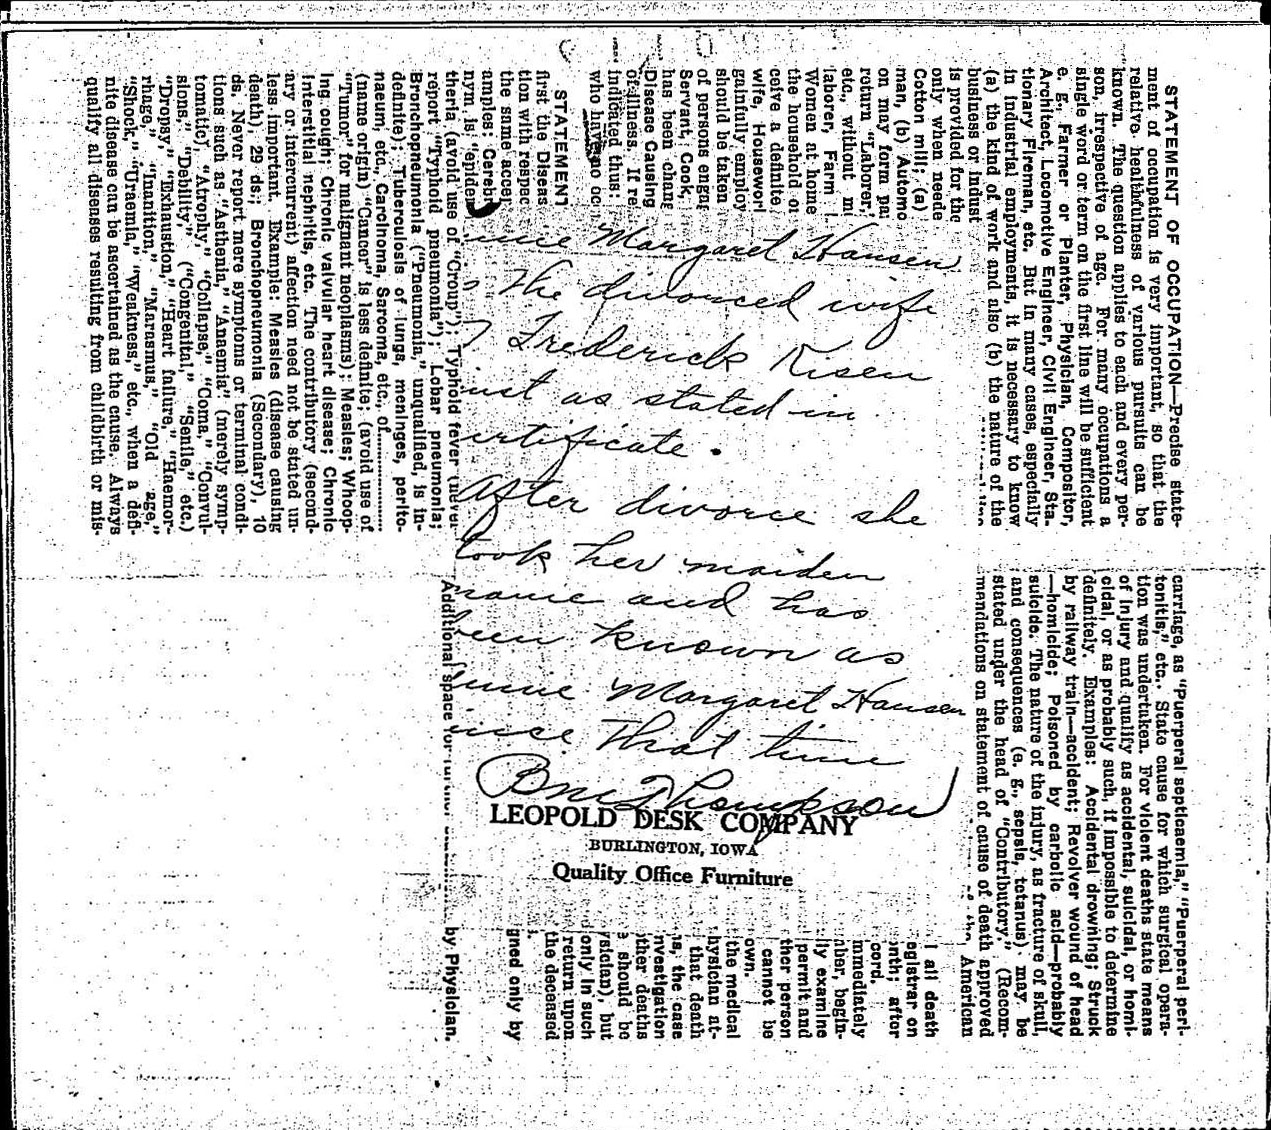 STATEMENT OF OCCUPATION—Precise state-
ment of occupation is very important, so that the
relative healthfulness of various pursuits can be
known. The question applies to each and every per-
son, irrespective of age. For many occupations a
single word or term on the first line will be sufficient
e. g., Farmer or Planter, Physician, Compositor,
Architect, Locomotive Engineer, Civil Engineer, Sta-
tionary Fireman, etc. But in many cases, especially
in industrial employments, it is necessary to know
(a) the kind of work and also (b) the nature of the
business or indust
is provided for the
only when neede
Cotton mill; (a)
man, (b) Automo
on may form pa
return "Laborer,"
etc., without m
laborer, Farm l
Women at home
the household o
ceive a definite
wife, Housewor
gainfully employ
should be taken
of persons engag
Servant, Cook,
has been chang
Disease Causing
of illness. If re
indicated thus:
who have no oc
STATEMENT
first the Diseas
tion with respec
the same accep
amples: Cereb
nym is "epidem
theria (avoid use of "Croup"); Typhoid fever (never
report "Typhoid pneumonia"); Lobar pneumonia;
Bronchopneumonia ("Pneumonia," unqualified, is in-
definite); Tuberculosis of lungs, meninges, perito-
naeum, etc., Carcinoma, Sarcoma, etc., of
(name origin) "Cancer" is less definite; (avoid use of
"Tumor" for malignant neoplasms); Measles; Whoop-
ing cough; Chronic valvular heart disease; Chronic
interstitial nephritis, etc. The contributory (second-
ary or intercurrent) affection need not be stated un-
less important. Example: Measles (disease causing
death), 29 ds.; Bronchopneumonia (Secondary), 10
ds. Never report mere symptoms or terminal condi-
tions such as "Asthenia," "Anaemia" (merely symp-
tomatic), "Atrophy," "Collapse," "Coma," "Convul-
sions," "Debility," ("Congenital," "Senile," etc.)
"Dropsy," "Exhaustion," "Heart failure," "Haemor-
rhage," "Inanition," "Marasmus," "Old age,"
"Shock," "Uraemia," "Weakness," etc., when a defi-
nite disease can be ascertained as the cause. Always
qualify all diseases resulting from childbirth or mis-
carriage, as "Puerperal septicaemia," "Puerperal peri-
tonitis," etc. State cause for which surgical opera-
tion was undertaken. For violent deaths state means
of injury and qualify as accidental, suicidal, or homi-
cidal, or as probably such, if impossible to determine
definitely. Examples: Accidental drowning; Struck
by railway train—accident; Revolver wound of head
—homicide; Poisoned by carbolic acid—probably
suicide. The nature of the injury, as fracture of skull,
and consequences (e. g., sepsis, tetanus) may be
stated under the head of "Contributory." (Recom-
mendations on statement of cause of death approved
American
all death
egistrar on
onth; after
cord.
mmediately
nber, begin-
lly examine
permit and
ther person
cannot be
own.
the medical
hysician at-
that death
s, the case
nvestigation
other deaths
e should be
ysician), but
only in such
return upon
the deceased
gned only by
Additional space for by Physician.
Margaret Hansen
the divorced wife
Frederick Risen
just as stated in
certificate.
After divorce she
took her maiden
name and has
been known as
Margaret Hansen
since that time
Thompson
LEOPOLD DESK COMPANY
BURLINGTON, IOWA
Quality Office Furniture